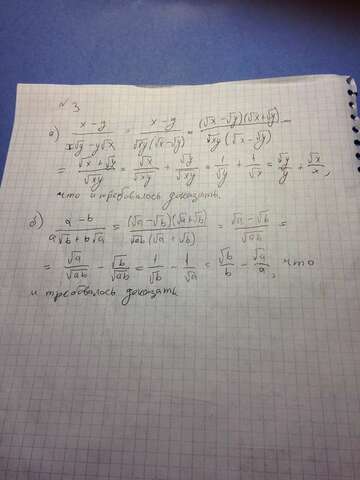 № 3
а) (x-y)/(x√y-y√x) = (x-y)/(√xy(√x-√y)) = ((√x-√y)(√x+√y))/(√xy(√x-√y)) =
= (√x+√y)/√xy = √x/√xy + √y/√xy = 1/√y + 1/√x = √y/y + √x/x,
что и требовалось доказать.
б) (a-b)/(a√b+b√a) = ((√a-√b)(√a+√b))/(√ab(√a+√b)) = (√a-√b)/√ab =
= √a/√ab - √b/√ab = 1/√b - 1/√a = √b/b - √a/a, что
и требовалось доказать